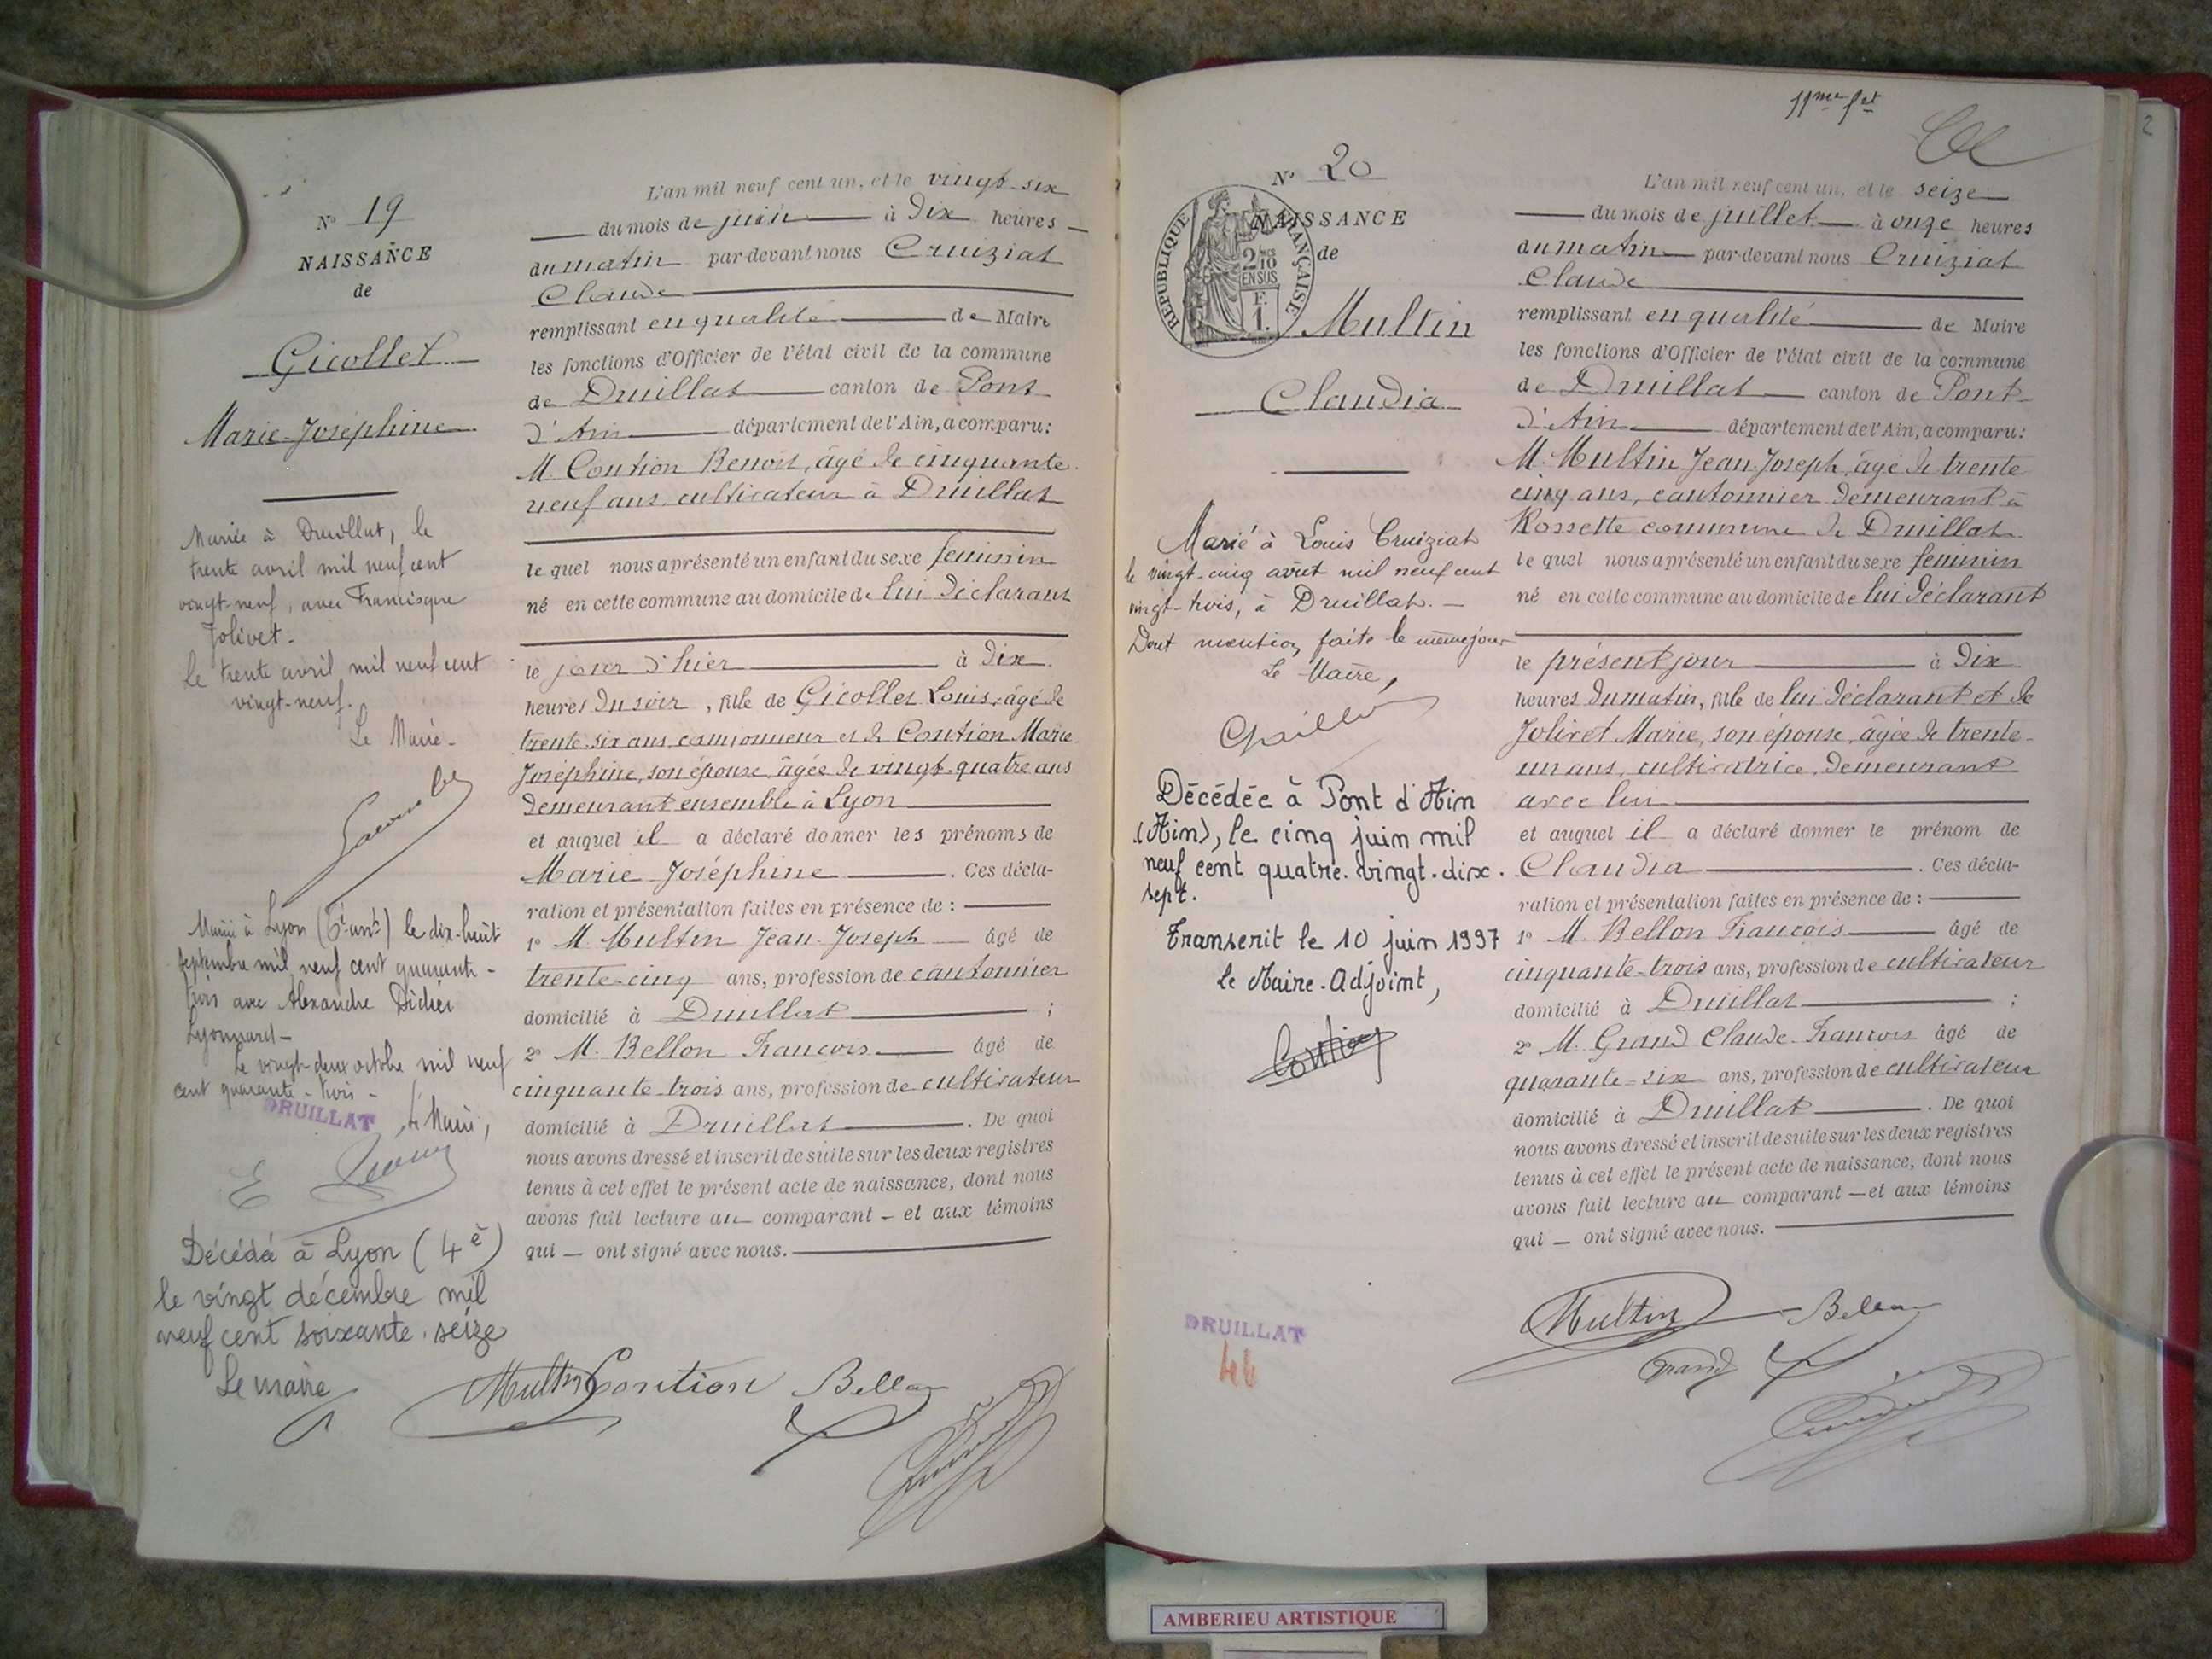 N° 19
NAISSANCE
de
Gicollet
Marie-Joséphine
Mariée à Druillat, le
trente avril mil neuf cent
vingt-neuf, avec Francisque
Jolivet.
Le trente avril mil neuf cent
vingt-neuf.
Le Maire.
Marié à Lyon (6e arrt) le dix-huit
septembre mil neuf cent quarante-
trois avec Alexandre Didier
Lyonnard-
Le vingt-deux octobre mil neuf
cent quarante-trois-
DRUILLAT
Le Maire,
Décédée à Lyon (4è)
le vingt décembre mil
neuf cent soixante-seize
Le maire
L'an mil neuf cent un, et le vingt-six
du mois de juin à Dix heures
du matin par-devant nous Cruiziat
Claude
remplissant en qualité de Maire
les fonctions d'Officier de l'état civil de la commune
de Druillat canton de Pont
d'Ain département de l'Ain, a comparu:
M. Coution Benoit, âgé de cinquante
neuf ans cultivateur à Druillat
le quel nous a présenté un enfant du sexe feminin
né en cette commune au domicile de lui déclarant
le jour d'hier à Dix
heures du soir, fille de Gicollet Louis, âgé de
trente-six ans, camionneur et de Coution Marie
Joséphine, son épouse, âgée de vingt-quatre ans
demeurant ensemble à Lyon
et auquel il a déclaré donner les prénoms de
Marie Joséphine. Ces décla-
ration et présentation faites en présence de :
1° M. Multin Jean-Joseph âgé de
trente-cinq ans, profession de cantonnier
domicilié à Druillat ;
2° M. Bellon Francois âgé de
cinquante-trois ans, profession de cultivateur
domicilié à Druillat. De quoi
nous avons dressé et inscrit de suite sur les deux registres
tenus à cet effet le présent acte de naissance, dont nous
avons fait lecture au comparant – et aux témoins
qui – ont signé avec nous.
Multin Coution Bellon
11me fet
N° 20
RÉPUBLIQUE FRANÇAISE
2/10 EN SUS
F. 1.
NAISSANCE
de
Multin
Claudia
Marié à Louis Cruiziat
le vingt-cinq avril mil neuf cent
vingt-trois, à Druillat.
Dont mention faite le même jour
Le Maire,
Décédée à Pont d'Ain
(Ain), le cinq juin mil
neuf cent quatre.vingt.dix.
sept.
Transcrit le 10 juin 1997
Le Maire-Adjoint,
Coution
DRUILLAT
46
L'an mil neuf cent un, et le seize
du mois de juillet à onze heures
du matin par-devant nous Cruiziat
Claude
remplissant en qualité de Maire
les fonctions d'Officier de l'état civil de la commune
de Druillat canton de Pont
d'Ain département de l'Ain, a comparu:
M. Multin Jean-Joseph, âgé de trente
cinq ans, cantonnier demeurant à
Rossette commune de Druillat
le quel nous a présenté un enfant du sexe feminin
né en cette commune au domicile de lui déclarant
le présent jour à Dix
heures du matin, fille de lui déclarant et de
Jolivet Marie, son épouse, âgée de trente-
un ans, cultivatrice, demeurant
avec lui
et auquel il a déclaré donner le prénom de
Claudia. Ces décla-
ration et présentation faites en présence de :
1° M. Bellon Francois âgé de
cinquante-trois ans, profession de cultivateur
domicilié à Druillat ;
2° M. Grand Claude-Francois âgé de
quarante-six ans, profession de cultivateur
domicilié à Druillat. De quoi
nous avons dressé et inscrit de suite sur les deux registres
tenus à cet effet le présent acte de naissance, dont nous
avons fait lecture au comparant – et aux témoins
qui – ont signé avec nous.
Multin Bellon
Grand
2
AMBERIEU ARTISTIQUE